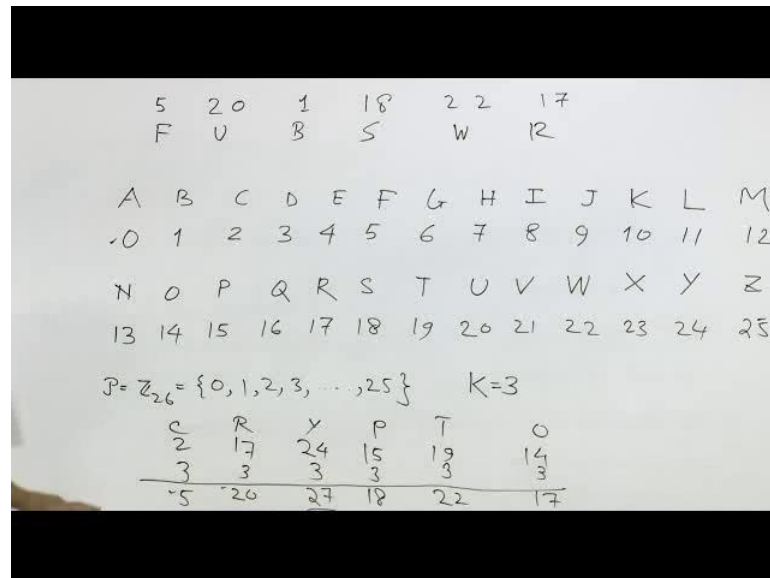 5 20 1 18 22 17
F U B S W R
A B C D E F G H I J K L M
0 1 2 3 4 5 6 7 8 9 10 11 12
N O P Q R S T U V W X Y Z
13 14 15 16 17 18 19 20 21 22 23 24 25
P = Z₂₆ = {0, 1, 2, 3, ..., 25} K=3
C R Y P T O
2 17 24 15 19 14
3 3 3 3 3 3
5 20 27 18 22 17